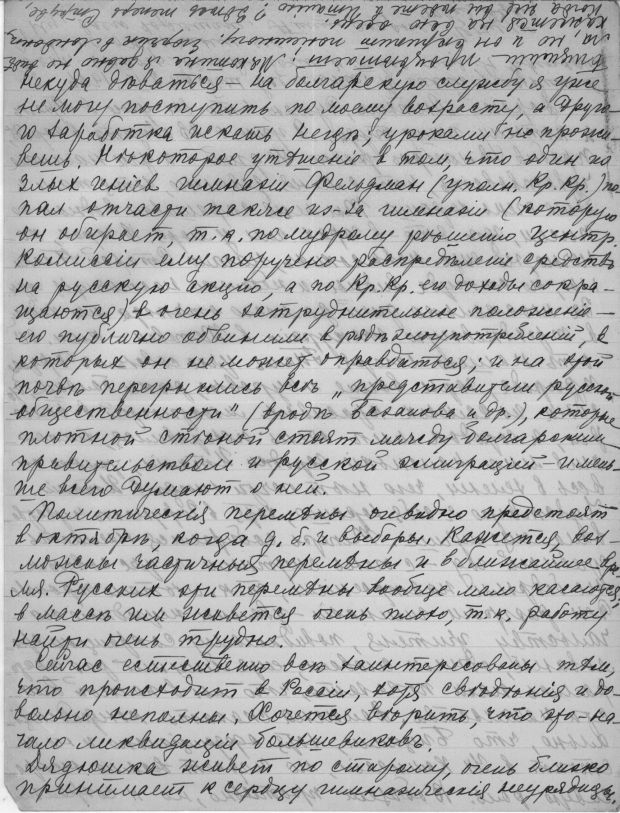 некуда дѣваться – на болгарскую службу я уже
не могу поступить по моему возрасту, а друго-
го заработка искать негдѣ; уроками не прожи-
вешь. Нѣкоторое утѣшеніе в том, что один из
злых геніев гимназіи Фельдман (уполн. Кр. Кр.) по-
пал отчасти также из-за гимназіи (которую
он обирает, т. к. по мудрому рѣшенію Центр.
Комиссіи ему поручено распредѣленіе средствъ
на русскую акцію, а по Кр. Кр. его доходы сокра-
щаются) в очень затруднительное положеніе –
его публично обвинили в рядѣ злоупотребленій, в
которых он не может оправдаться; и на этой
почвѣ перегрызлись всѣ „представители русской
общественности" (вродѣ Базанова и др.), которые
плотной стѣной стоят между болгарским
правительством и русской эмиграціей – и мень-
ше всего думают о ней.
Политическія перемѣны очевидно предстоят
в октябрѣ, когда д. б. и выборы. Кажется, воз-
можны частичныя перемѣны и в ближайшее вре-
мя. Русских эти перемѣны вообще мало касаются,
в массѣ им живется очень плохо, т. к. работу
найти очень трудно.
Сейчас естественно всѣ заинтересованы тѣм,
что происходит в Россіи, хотя свѣдѣнія и до-
вольно неполны. Хочется вѣрить, что это – на-
чало ликвидаціи большевиковъ.
Дядюшка живет по старому, очень близко
принимает к сердцу гимназическія неурядицы,